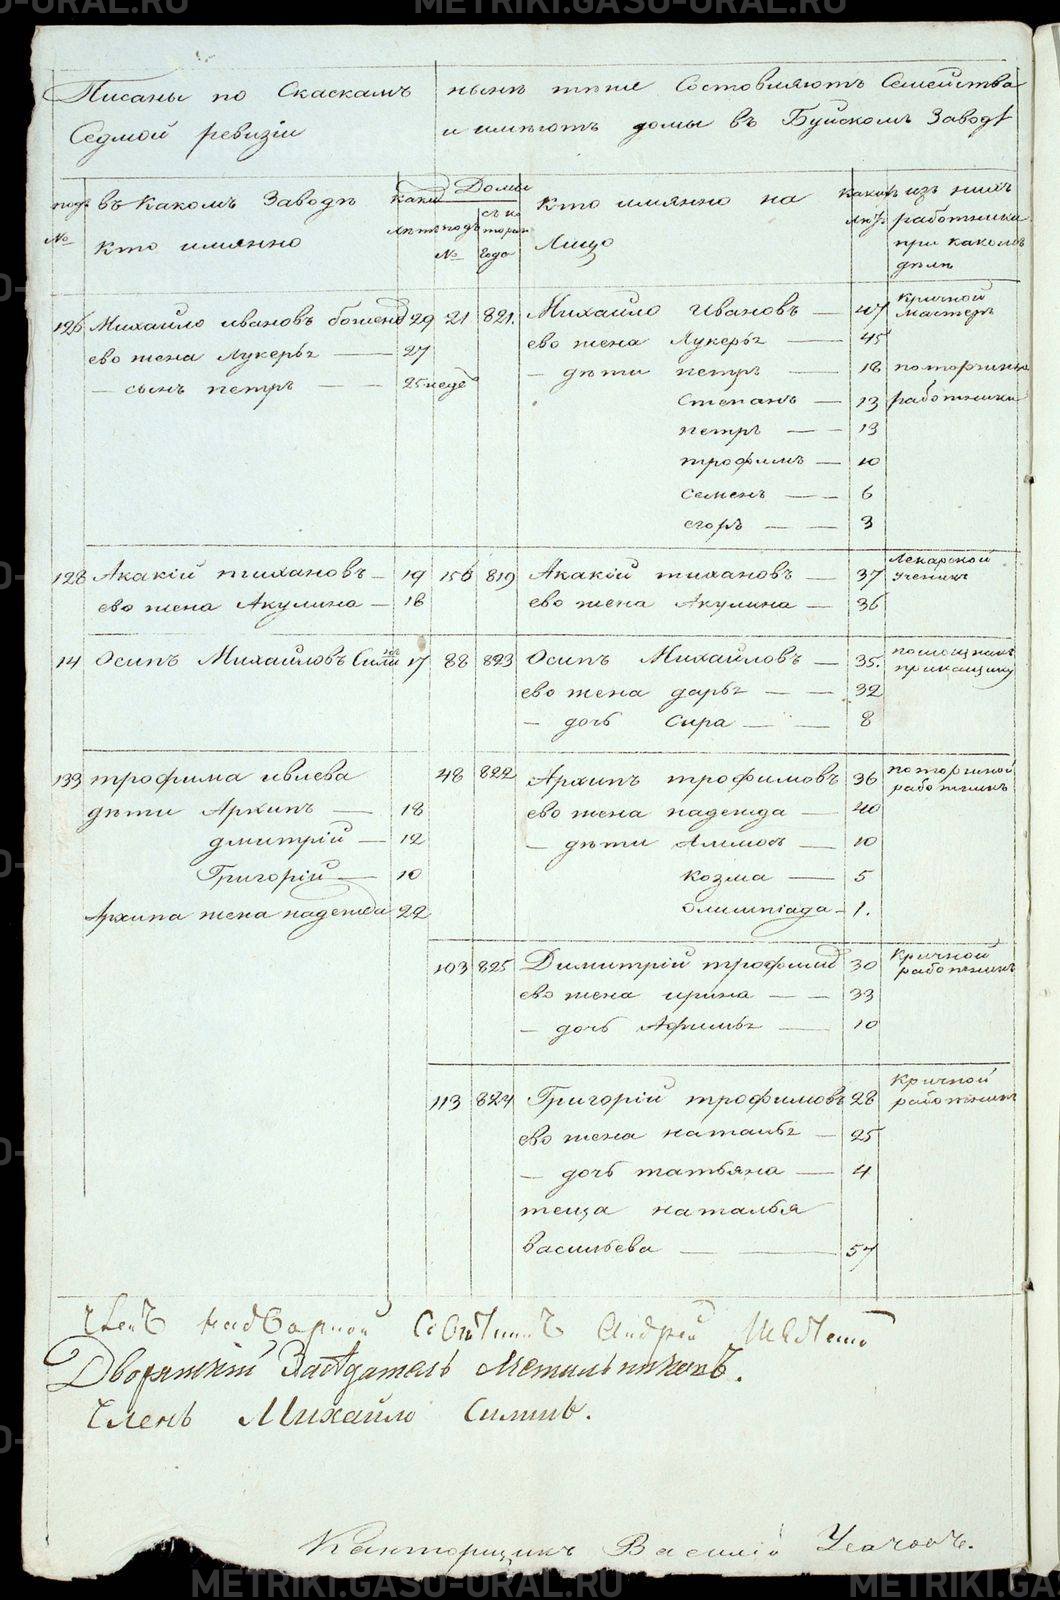 METRIKI.GASU-URAL.RU METRIKI.GASU-URAL.RU
Писаны по Скаскамъ
Седмой ревизiи
нынѣ тѣже Состовляютъ Семейства
и имѣютъ домы въ Буйскомъ Заводѣ
подъ № въ Какомъ Заводѣ
кто имянно
Каки лѣтъ
Домы
подъ №
съ которого года
кто имянно на
Лицо
Какихъ лѣтъ
изъ нихъ
работники
при какомъ
дѣлѣ
126 Михайло ивановъ 29 21 821. Михайло Ивановъ — 47 Кричной мастеръ
ево жена Лукерьѣ — 27 ево жена Лукерьѣ — 45
— сынъ петръ — 25 неде — дѣти петръ — 18 поторжные
Степанъ — 13 работники
петръ — 13
трофимъ — 10
Семенъ — 6
егоръ — 3
128 Акакiй тихановъ — 19 156 819 Акакiй тихановъ — 37 Лекарской ученикъ
ево жена Акулина — 18 ево жена Акулина — 36
14 Осипъ Михайловъ 17 88 823 Осипъ Михайловъ — 35. помощникъ прикащику
ево жена дарьѣ — 32
— дочь Сира — 8
133 трофима ивлева 48 822 Архипъ трофимовъ 36 поторжной работникъ
дѣти Архипъ — 18 ево жена надежда — 40
дмитрiй — 12 — дѣти — 10
Григорiй — 10 козма — 5
Архипа жена надежда 22 Олимпiада — 1.
103 825 Димитрiй трофимо 30 Кричной работникъ
ево жена ирина — 33
— дочь Афимьѣ — 10
113 824 Григорiй трофимовъ 28 Кричной работникъ
ево жена натальѣ — 25
— дочь татьяна — 4
теща наталья
васильева — 57
Членъ надворной Совѣтникъ Андрей
Дворянскiй Засѣдатель Метальниковъ.
Членъ Михайло
Канторщикъ Василiй Усачовъ.
METRIKI.GASU-URAL.RU METRIKI.GASU-URAL.RU